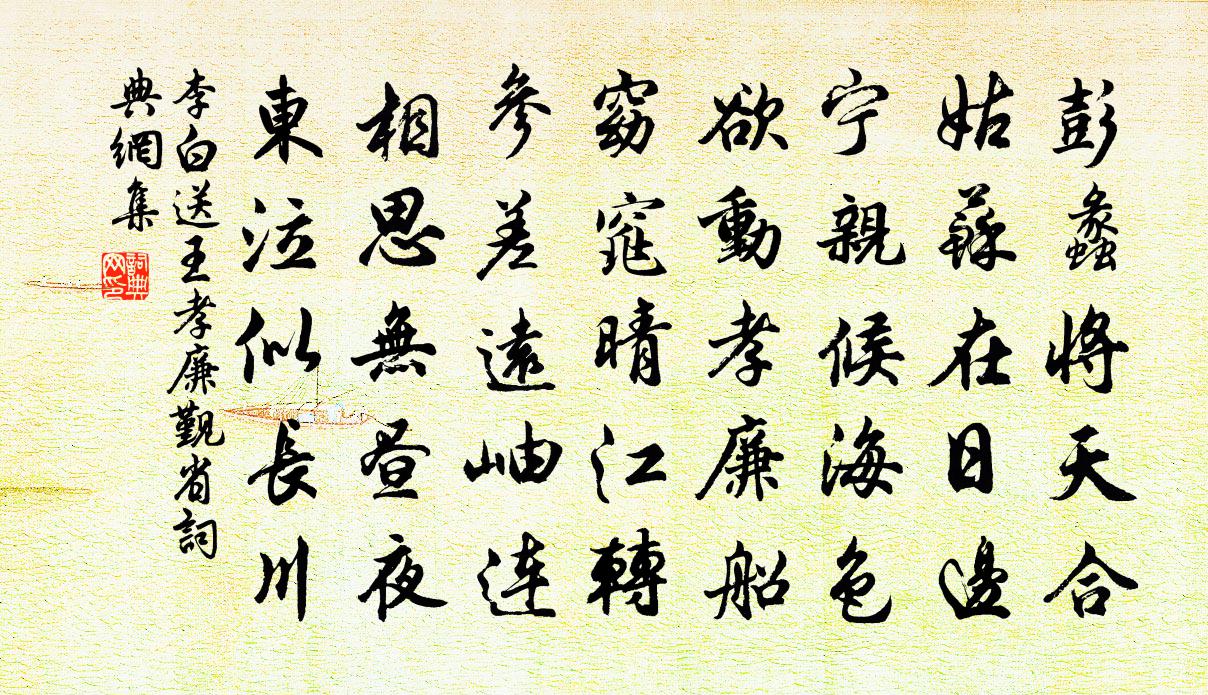 彭蠡將天合
姑蘇在日邊
宁親候海色
欲動孝廉船
窈窕晴江轉
參差遠岫連
相思無昼夜
東泣似長川
李白送王孝廉覲省詞
典網集
詞典
网印